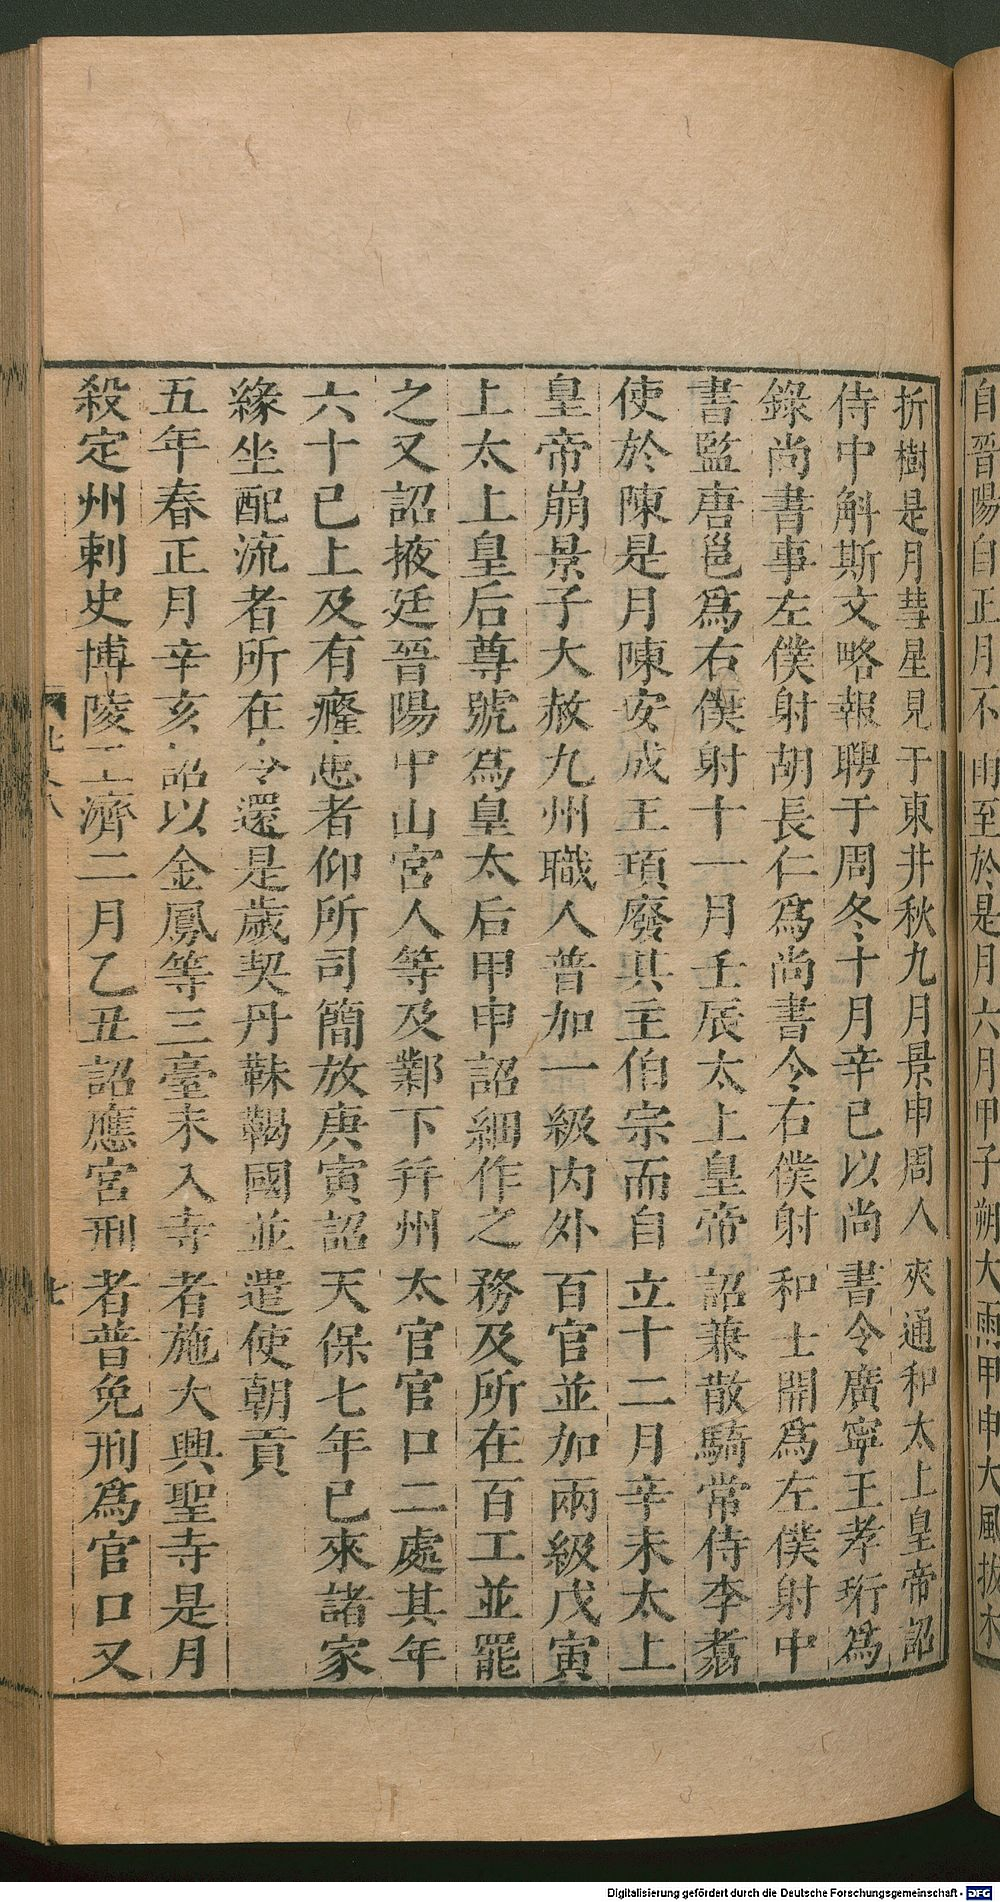 自晉陽自正月不雨至於是月六月甲子朔大雨甲申大風拔木
折樹是月彗星見于東井秋九月景申周人來通和太上皇帝詔
侍中斛斯文略報聘于周冬十月辛巳以尚書令廣寧王孝珩爲
錄尚書事左僕射胡長仁爲尚書令右僕射和士開爲左僕射中
書監唐邕爲右僕射十一月壬辰太上皇帝詔兼散騎常侍李翥
使於陳是月陳安成王頊廢其主伯宗而自立十二月辛未太上
皇帝崩景子大赦九州職人普加一級內外百官並加兩級戊寅
上太上皇后尊號爲皇太后甲申詔細作之務及所在百工並罷
之又詔掖廷晉陽中山宮人等及鄴下幷州太官官口二處其年
六十已上及有癃患者仰所司簡放庚寅詔天保七年已來諸家
緣坐配流者所在令還是歲契丹靺鞨國並遣使朝貢
五年春正月辛亥詔以金鳳等三臺未入寺者施大興聖寺是月
殺定州刺史博陵王濟二月乙丑詔應宮刑者普免刑爲官口又
北史八
七
Digitalisierung gefördert durch die Deutsche Forschungsgemeinschaft - DFG